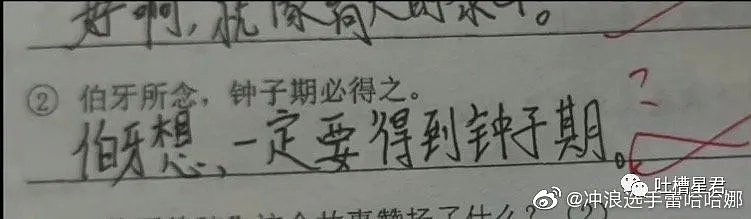 好啊,就像
② 伯牙所念,钟子期必得之。
伯牙想,一定要得到钟子期。
?
吐槽星君
@冲浪选手雷哈哈娜
这个故事赞扬了什么?(2)